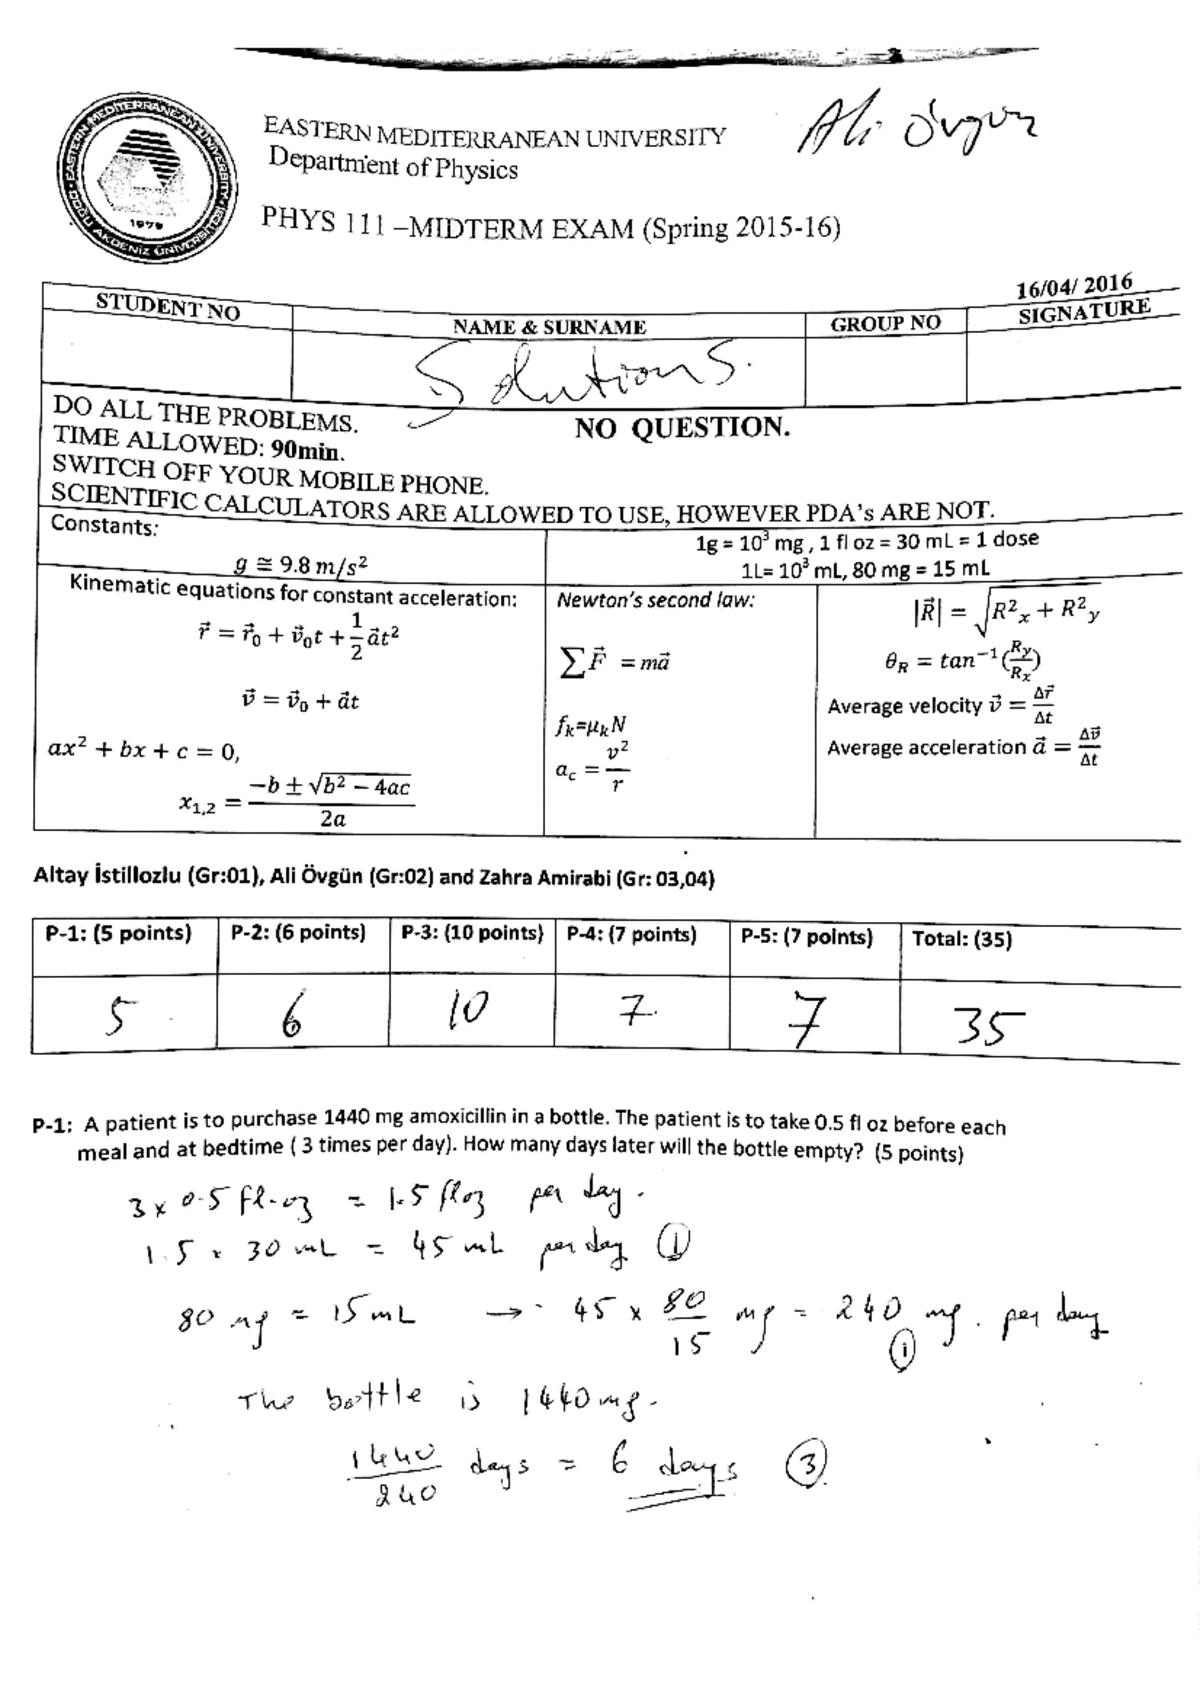 Ali Övgün
EASTERN MEDITERRANEAN UNIVERSITY
Department of Physics
PHYS 111 –MIDTERM EXAM (Spring 2015-16)
EASTERN MEDITERRANEAN UNIVERSITY
1979
DOĞU AKDENİZ ÜNİVERSİTESİ
16/04/ 2016
STUDENT NO NAME & SURNAME GROUP NO SIGNATURE
Solutions.
DO ALL THE PROBLEMS. NO QUESTION.
TIME ALLOWED: 90min.
SWITCH OFF YOUR MOBILE PHONE.
SCIENTIFIC CALCULATORS ARE ALLOWED TO USE, HOWEVER PDA's ARE NOT.
Constants:
g ≅ 9.8 m/s²
1g = 10³ mg , 1 fl oz = 30 mL = 1 dose
1L= 10³ mL, 80 mg = 15 mL
Kinematic equations for constant acceleration:
r⃗ = r⃗₀ + v⃗₀t + 1/2 a⃗t²
v⃗ = v⃗₀ + a⃗t
ax² + bx + c = 0,
x₁,₂ = (−b ± √(b² − 4ac))/2a
Newton's second law:
∑F⃗ = ma⃗
fₖ=μₖN
a_c = v²/r
|R⃗| = √(R²ₓ + R²_y)
θ_R = tan⁻¹(R_y/Rₓ)
Average velocity v⃗ = Δr⃗/Δt
Average acceleration a⃗ = Δv⃗/Δt
Altay İstillozlu (Gr:01), Ali Övgün (Gr:02) and Zahra Amirabi (Gr: 03,04)
P-1: (5 points) P-2: (6 points) P-3: (10 points) P-4: (7 points) P-5: (7 points) Total: (35)
5 6 10 7. 7 35
P-1: A patient is to purchase 1440 mg amoxicillin in a bottle. The patient is to take 0.5 fl oz before each
meal and at bedtime ( 3 times per day). How many days later will the bottle empty? (5 points)
3 x 0.5 fl-oz = 1.5 floz per day.
1.5 x 30 mL = 45 mL per day (1)
80 mg = 15 mL → 45 x 80/15 mg = 240 mg. per day
(1)
The bottle is 1440 mg.
1440/240 days = 6 days (3)